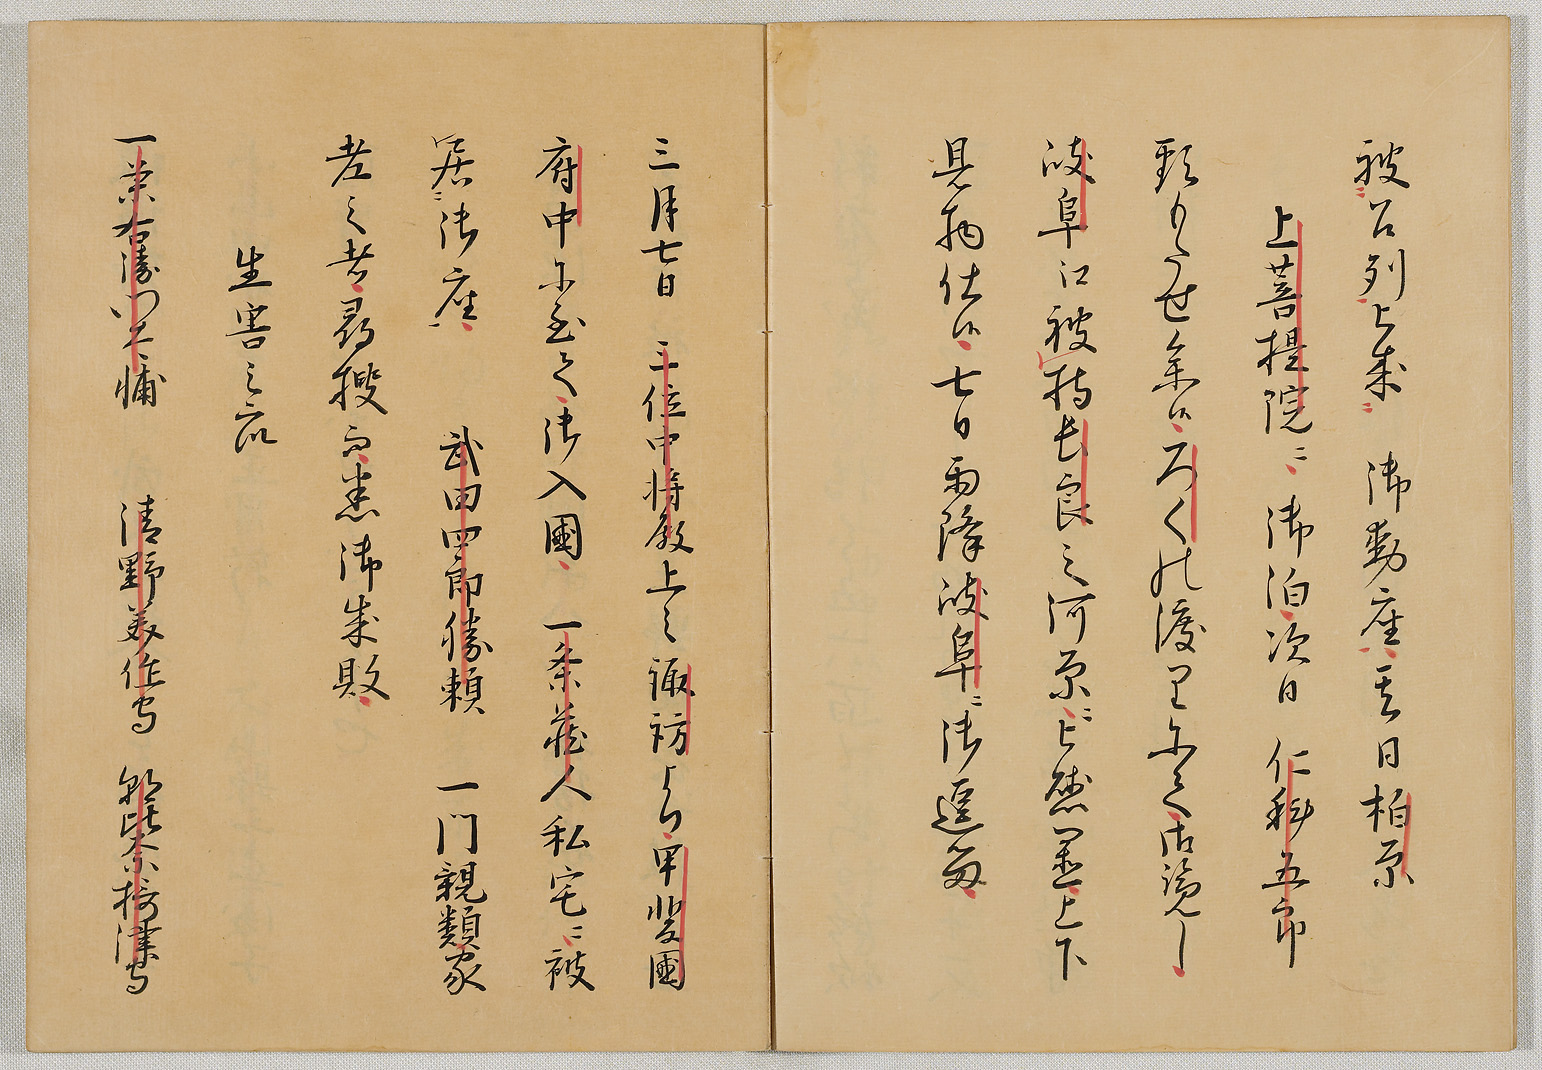 被召列上来 御動座其日柏原
上菩提院ニ御泊次日 仁科五郎
頸もたせ参候ろくの渡りにて御覧し
岐阜江被持長良之河原ニ上懸置上下
見物仕候七日雨降岐阜ニ御逗留
三月七日 三位中将殿上之諏訪より甲斐国
府中に至て御入國 一条蔵人私宅ニ被
居御座 武田四郎勝頼 一門親類家
老之者尋捜而悉御成敗
生害之衆
一条右衛門大輔 清野美作守 朝比奈摂津守